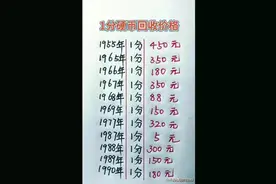 1分硬币回收价格
1955年 1分 450元
1965年 1分 350元
1966年 1分 180元
1967年 1分 350元
1968年 1分 88元
1969年 1分 150元
1977年 1分 320元
1987年 1分 5元
1988年 1分 300元
1989年 1分 150元
1990年 1分 180元